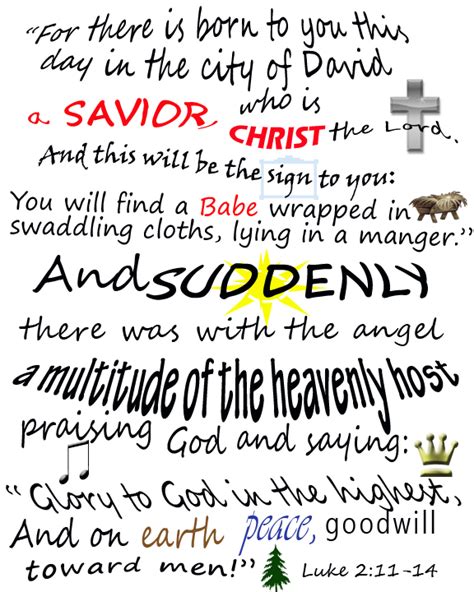 “For there is born to you this
day in the city of David
a SAVIOR, who is
CHRIST the Lord.
And this will be the sign to you:
You will find a Babe wrapped in
swaddling cloths, lying in a manger.”
And SUDDENLY
there was with the angel
a multitude of the heavenly host
praising God and saying:
“Glory to God in the highest,
And on earth peace, goodwill
toward men!” Luke 2:11-14